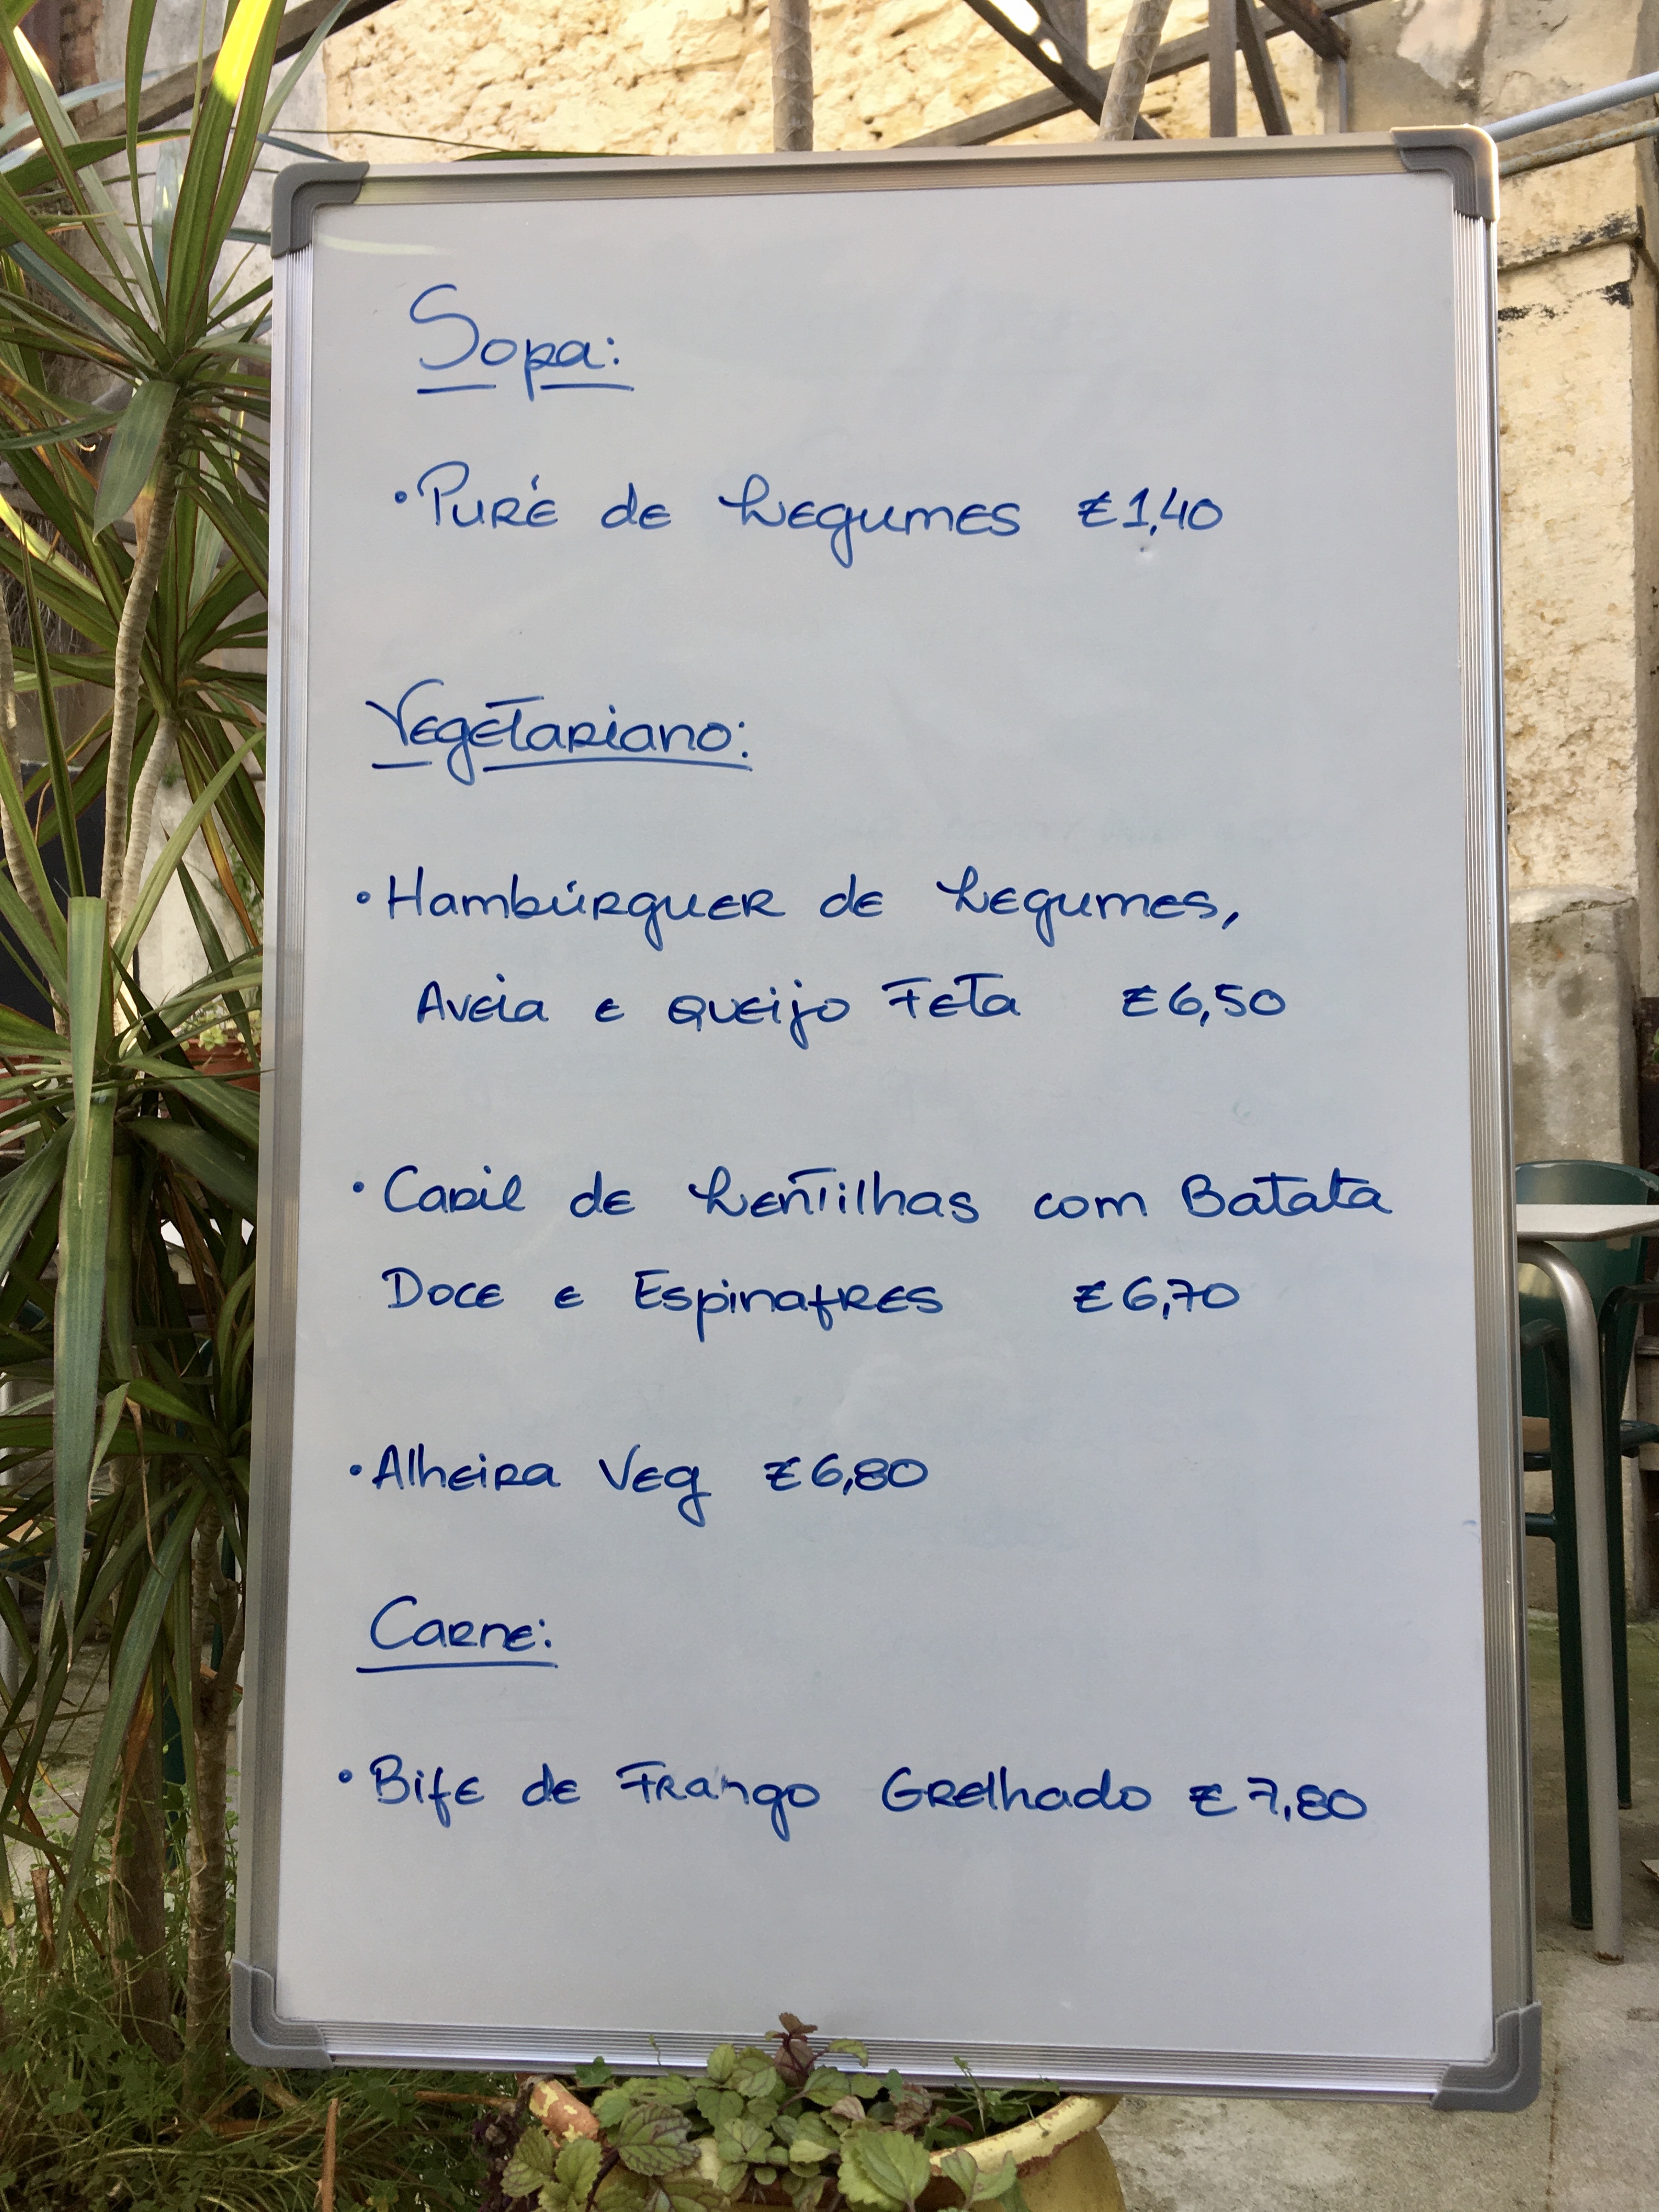 Sopa:
• Puré de Legumes €1,40
Vegetariano:
• Hambúrguer de Legumes,
Aveia e Queijo Feta €6,50
• Caril de Lentilhas com Batata
Doce e Espinafres €6,70
• Alheira Veg €6,80
Carne:
• Bife de Frango Grelhado €7,80